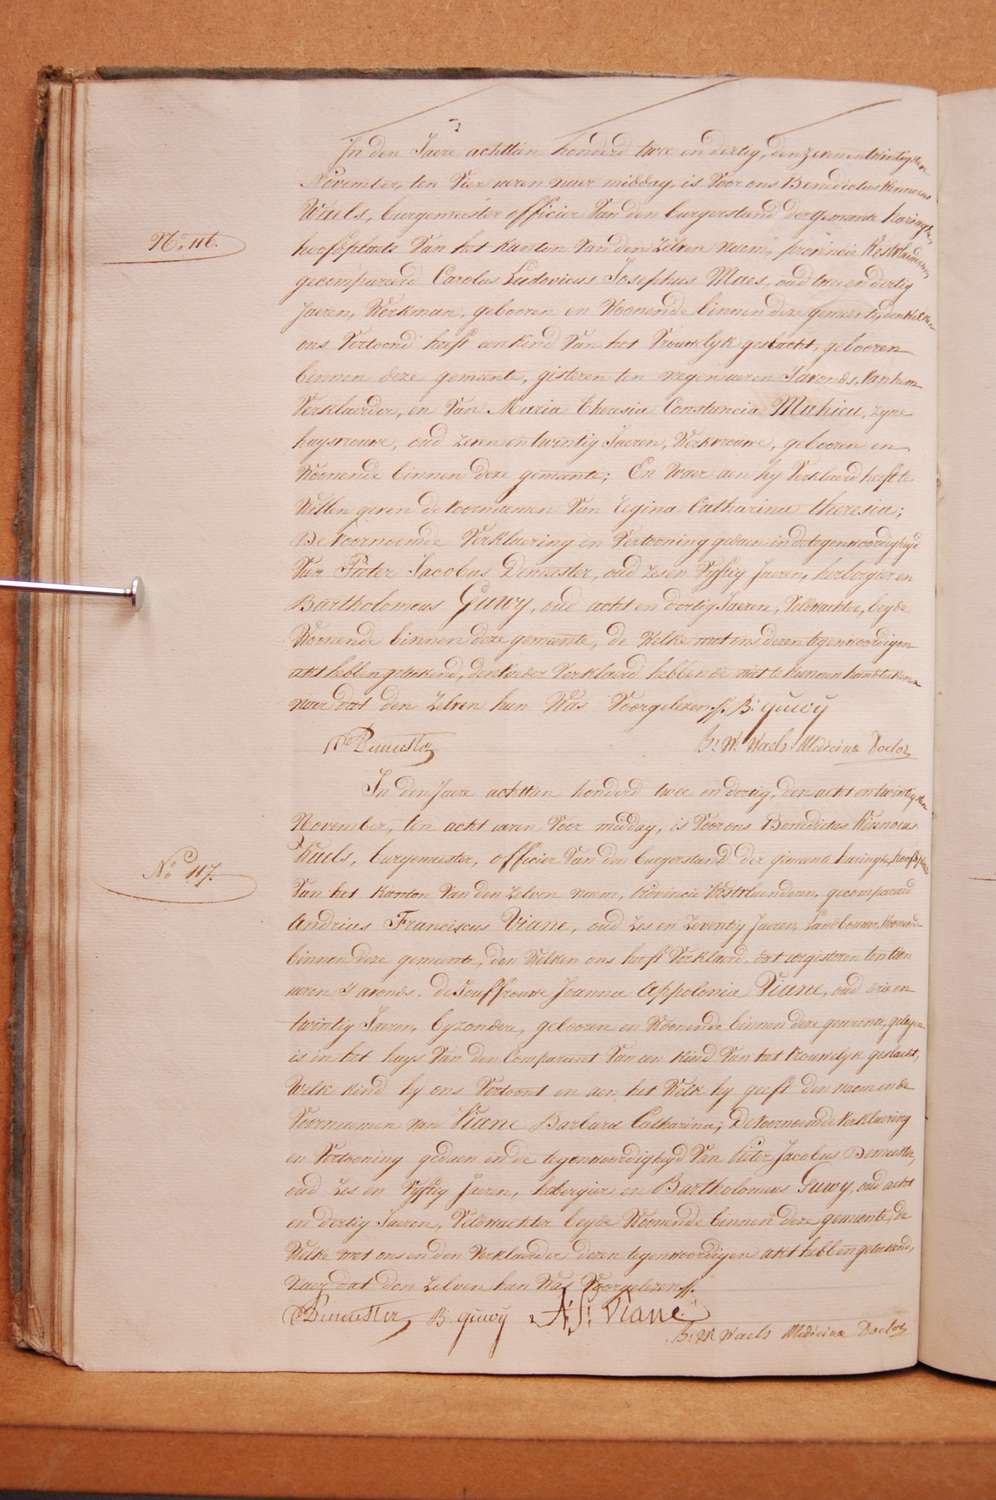 In den Jaere achttien honderd twee en dertig, den zevenentwintigsten
November, ten vier uren naer middag, is voor ons Benedictus
Waels, burgemeester officier van den burgerstand der gemeente haringhe,
N.° 116.
hoofdplaets van het kanton van den zelven naem, provincie Westvlaenderen
gecompareerd Carolus Ludovicus Josephus Maes, oud twee en dertig
Jaeren, Werkman, geboren en Woonende binnen deze gemeente, den welken
ons vertoond heeft een kind van het vrouwelyk geslacht, gebooren
binnen deze gemeente, gisteren ten negen uren s'avonds, van hem
Verklaerder, en van Maria Theresia Constancia Mahieu, zyne
huysvrouwe, oud zeven en twintig Jaeren, Werkvrouwe, gebooren en
Woonende binnen deze gemeente; En waer aen hy verklaerd heeft te
willen geven de voornaemen van Regina Catharina Theresia;
De voornoemde Verklaering en Vertooning gedaen in de tegenwoordigheyd
van Pieter Jacobus Demeester, oud zes en vyftig Jaeren, herbergier en
Bartholomeus Guwy, oud acht en dertig Jaeren, veldwachter, beyde
Woonende binnen deze gemeente, de welke met ons dezen tegenwoordigen
akt hebben geteekend, den vader verklaerd hebbende niet te kunnen handteekenen
naer dat den zelven hun was voorgelezen. B: guwy
Demeester
B: W. Waels Medicinæ Doctor
In den Jaere achttien honderd twee en dertig, den acht en twintigsten
November, ten acht uren voor middag, is voor ons Benedictus
Waels, burgemeester, officier van den burgerstand der gemeente haringhe, hoofdplaets
N.° 117.
van het kanton van den zelven naem, provincie Westvlaenderen, gecompareerd
Andreas Franciscus Viane, oud zes en zeventig Jaeren, Landbouwer, Woonende
binnen deze gemeente, den welken ons heeft verklaerd, dat eergisteren ten tien
uren s'avonds, de Jouffrouwe Joanna Appolonia Viane, oud drie en
twintig Jaeren, byzondere, gebooren en Woonende binnen deze gemeente, gelegen
is in het huys van den Comparant van een kind van het vrouwelyk geslacht,
Welk kind hy ons vertoont en aen het welk hy geeft den naem en de
voornaemen van Viane Barbara Catharina; De voornoemde Verklaering
en Vertooning gedaen in de tegenwoordigheyd van Pieter Jacobus Demeester,
oud zes en vyftig Jaeren, herbergier en Bartholomeus Guwy, oud acht
en dertig Jaeren, veldwachter beyde Woonende binnen deze gemeente, de
Welke met ons en den Verklaerder dezen tegenwoordigen akt hebben geteekend,
naer dat den zelven hun was voorgelezen.
Demeester B. guwy A: f: Viane
B: W Waels Medicinæ Doctor